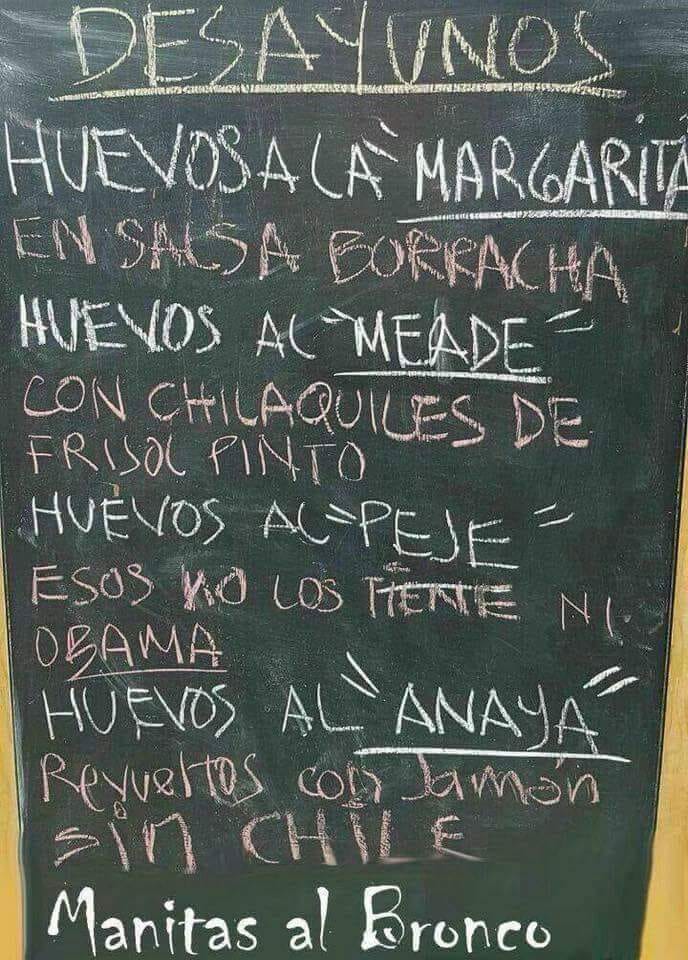 DESAYUNOS
HUEVOS A LA "MARGARITA
EN SALSA BORRACHA
HUEVOS AL "MEADE"
CON CHILAQUILES DE
FRISOL PINTO
HUEVOS AL "PEJE"
ESOS NO LOS TIENE NI
OBAMA
HUEVOS AL "ANAYA"
Revueltos con Jamón
sin CHILE
Manitas al Bronco